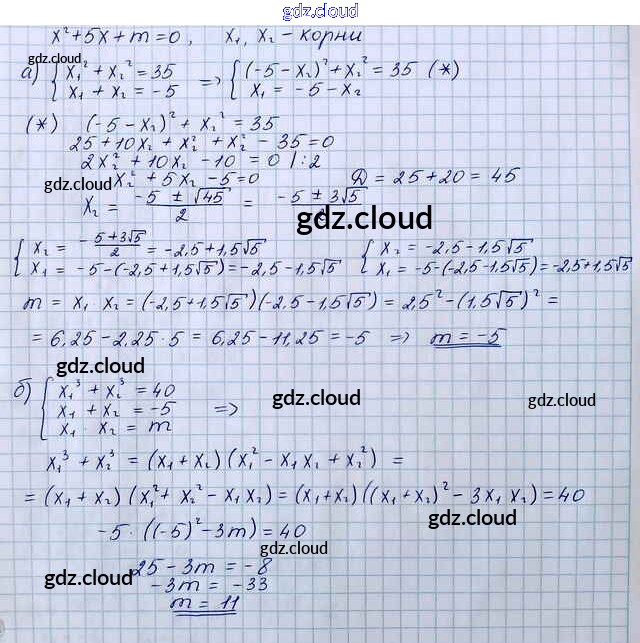 gdz.cloud
x²+5x+m=0, x₁, x₂ – корни
gdz.cloud
а) { x₁² + x₂² = 35 => { (-5-x₂)² + x₂² = 35 (*)
x₁ + x₂ = -5 x₁ = -5-x₂
(*) (-5-x₂)² + x₂² = 35
25 + 10x₂ + x₂² + x₂² - 35 = 0
2x₂² + 10x₂ - 10 = 0 |:2
gdz.cloud x₂² + 5x₂ - 5 = 0 D = 25+20 = 45
x₂ = (-5 ± √45)/2 = (-5 ± 3√5)/2
gdz.cloud
{ x₂ = -(5+3√5)/2 = -2,5+1,5√5 { x₂ = -2,5-1,5√5
x₁ = -5-(-2,5+1,5√5) = -2,5-1,5√5 x₁ = -5-(-2,5-1,5√5) = -2,5+1,5√5
m = x₁ x₂ = (-2,5+1,5√5)(-2,5-1,5√5) = 2,5² - (1,5√5)² =
= 6,25 - 2,25·5 = 6,25 - 11,25 = -5 => m = -5
gdz.cloud
б) { x₁³ + x₂³ = 40
x₁ + x₂ = -5 =>
x₁ · x₂ = m
gdz.cloud gdz.cloud
x₁³ + x₂³ = (x₁+x₂)(x₁² - x₁x₂ + x₂²) =
= (x₁+x₂)(x₁² + x₂² - x₁x₂) = (x₁+x₂)((x₁+x₂)² - 3x₁x₂) = 40
gdz.cloud
-5·((-5)² - 3m) = 40
gdz.cloud
25 - 3m = -8
gdz.cloud -3m = -33
m = 11
gdz.cloud